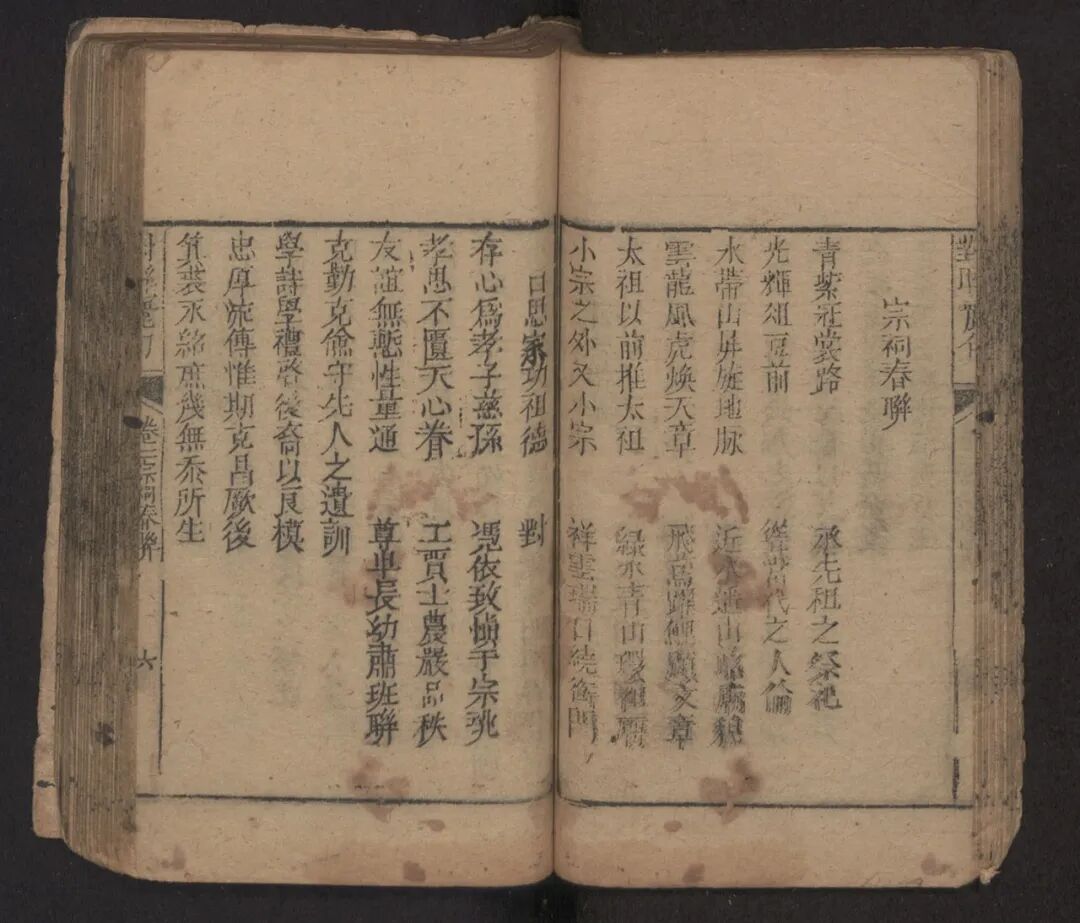 宗祠春聯
青紫冠裳路　承先祖之祭祀
光輝俎豆前　代之人倫
水帶山屏旋地脉　近水山廟貌
雲龍風虎煥天章　飛鳶躍鯉顯文章
太祖以前推太祖　綠水青山環祖
小宗之外又小宗　祥雲瑞日繞門
日思家功祖德　對
存心爲孝子慈孫　憑依致慎于宗祧
孝思不匱天心眷　工賈士農嚴品秩
友誼無慙性量通　尊卑長幼肅班聯
克勤克儉守先人之遺訓
學詩學禮啓後裔以良模
忠厚流傳惟期克昌厥後
箕裘永紹庶幾無忝所生
卷二宗祠春聯　六